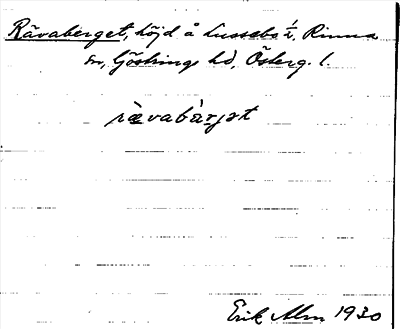 Rävaberget, höjd å Lussebo ½, Rinna
sn, Göstrings hd, Österg. l.
rävabärjət
Erik Alm 1930